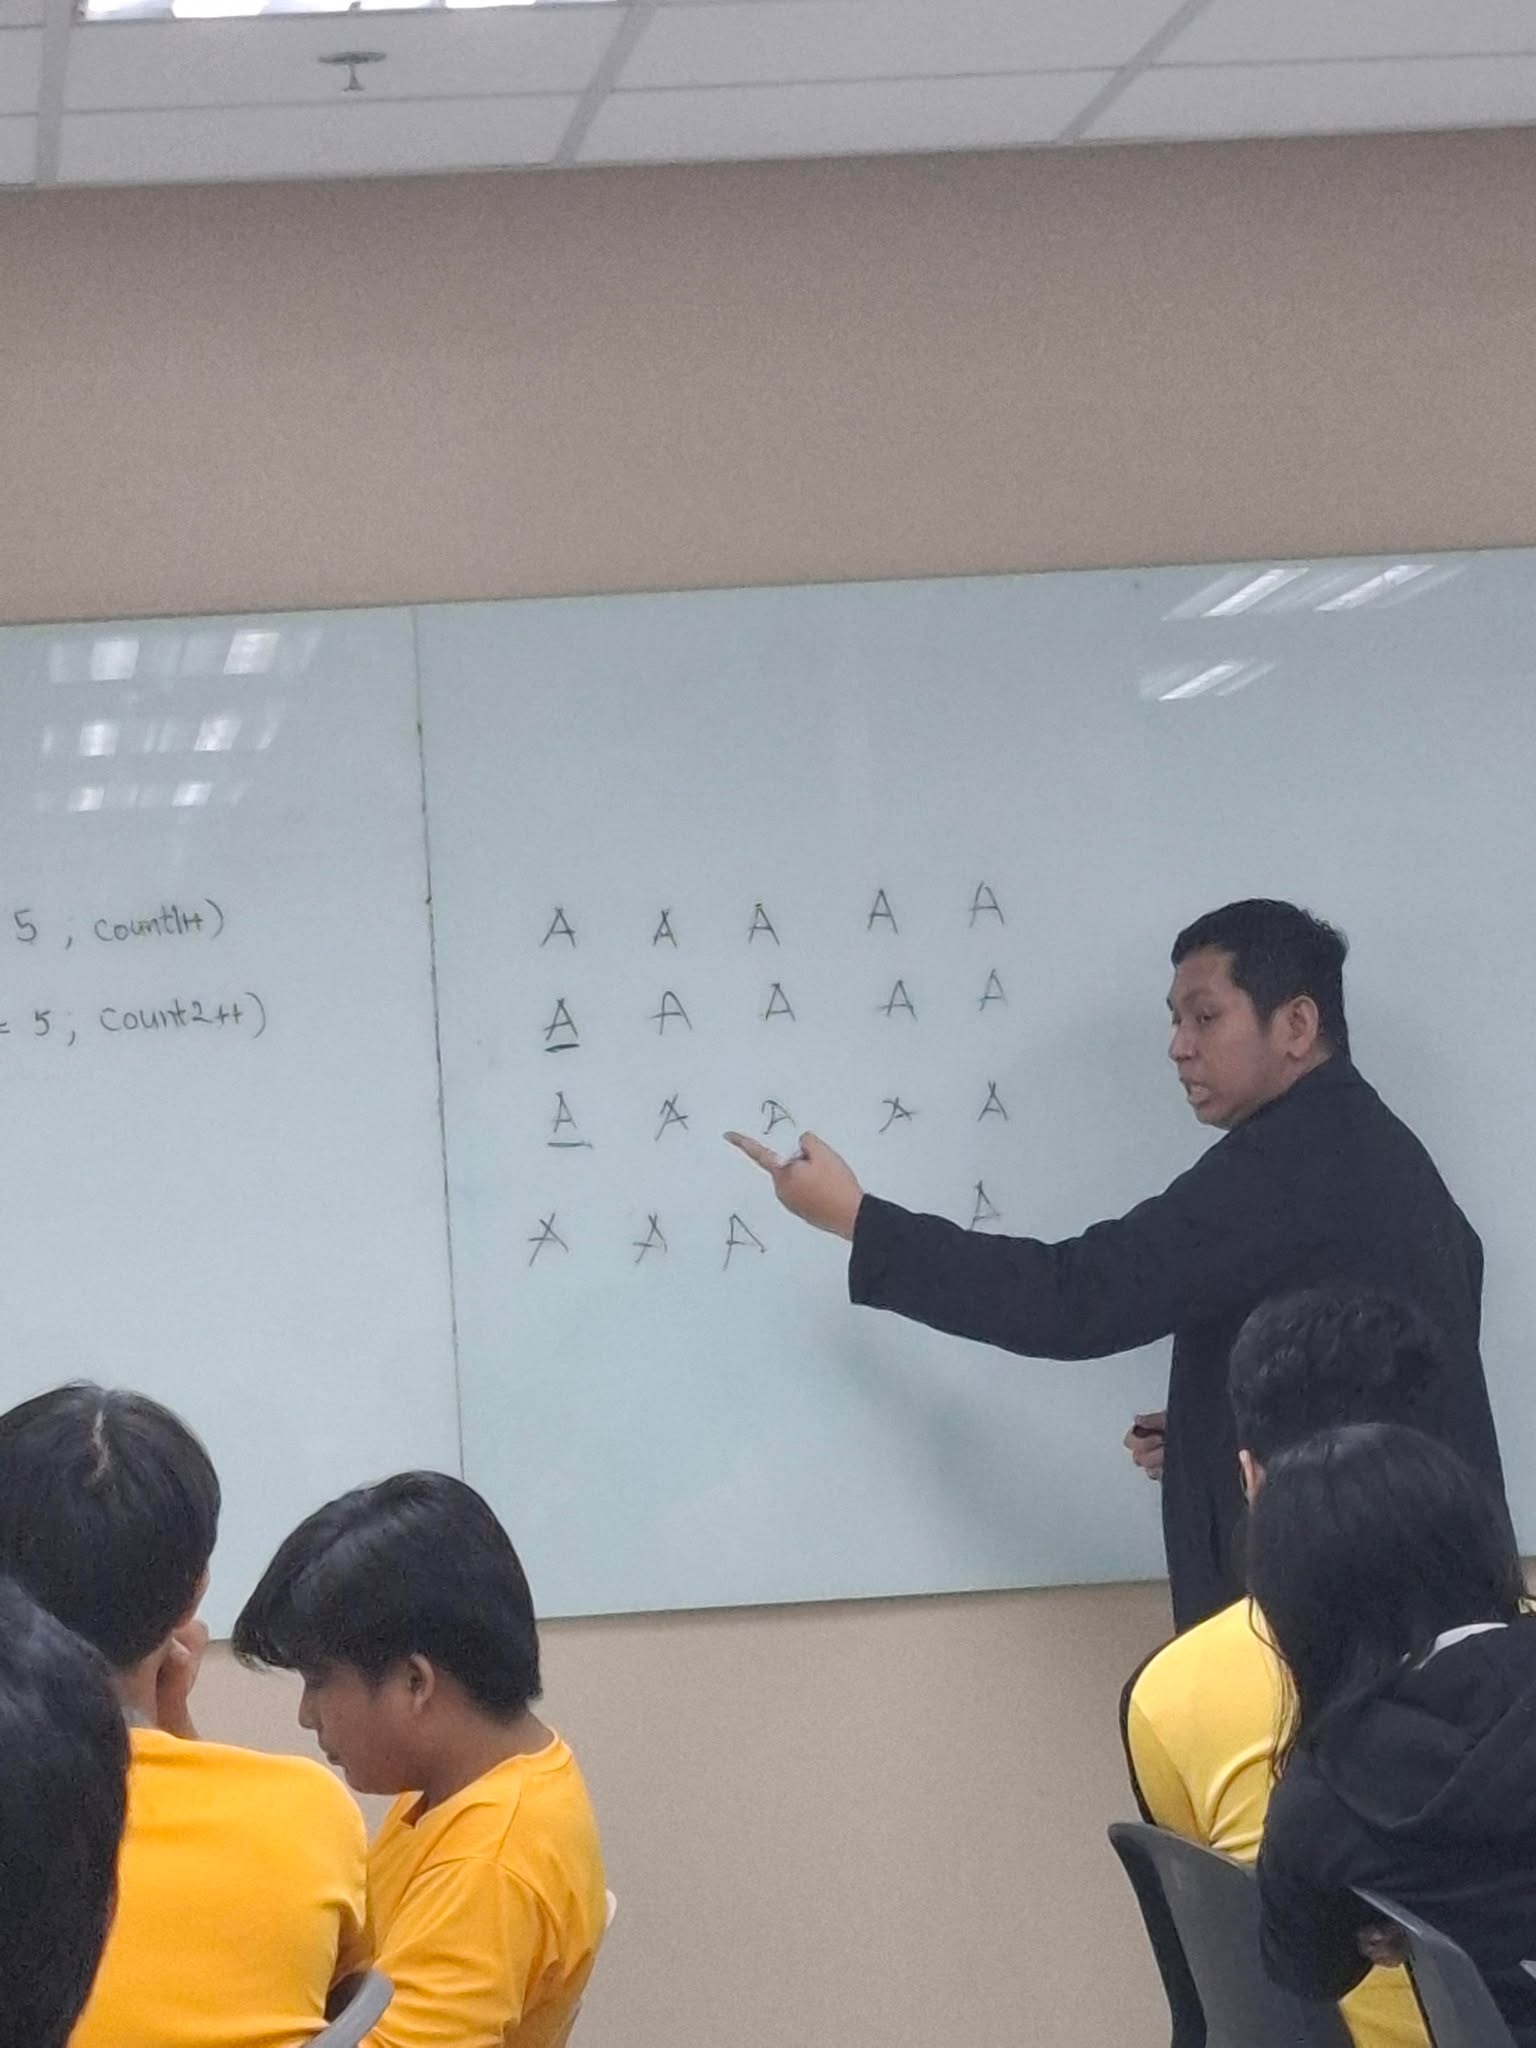 5 ; count1++)
= 5 ; count2++)
A A A A A
A A A A A
A A A A A
A A A A